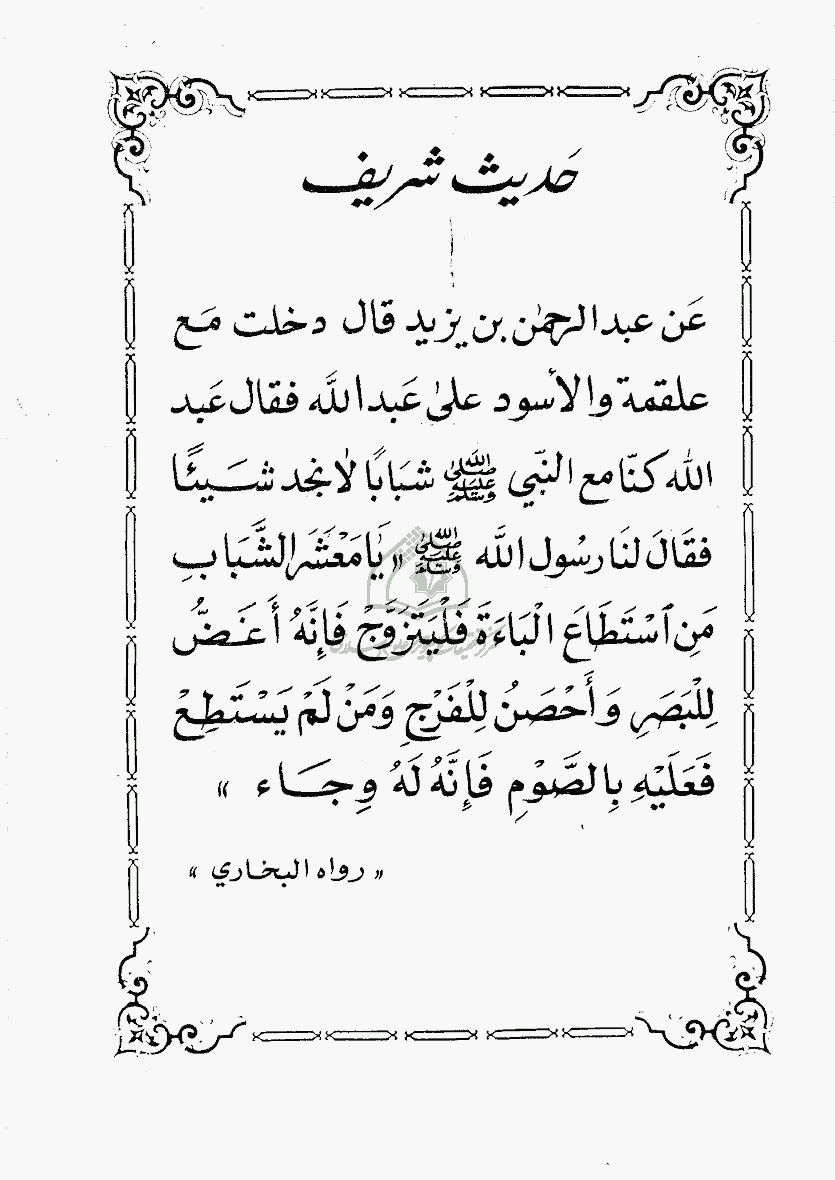 حَديث شريف
عَن عبد الرحمٰن بن يزيد قال دخلت مَع
علقمة والأسود علىٰ عَبد اللَّه فقال عَبد
اللّٰه كنّا مع النبّي ﷺ شبَابًا لاٰ نجد شَيئًا
فقَالَ لنَا رسُول اللَّه ﷺ « يَا مَعْشَرَ الشَّبَابِ
مَنِ ٱسْتَطَاعَ الْبَاءَةَ فَلْيَتَزَوَّجْ فَإِنَّهُ أَغَضُّ
لِلْبَصَرِ وَأَحْصَنُ لِلْفَرْجِ وَمَنْ لَمْ يَسْتَطِعْ
فَعَلَيْهِ بِالصَّوْمِ فَإِنَّهُ لَهُ وِجَاء »
« رواه البخاري »